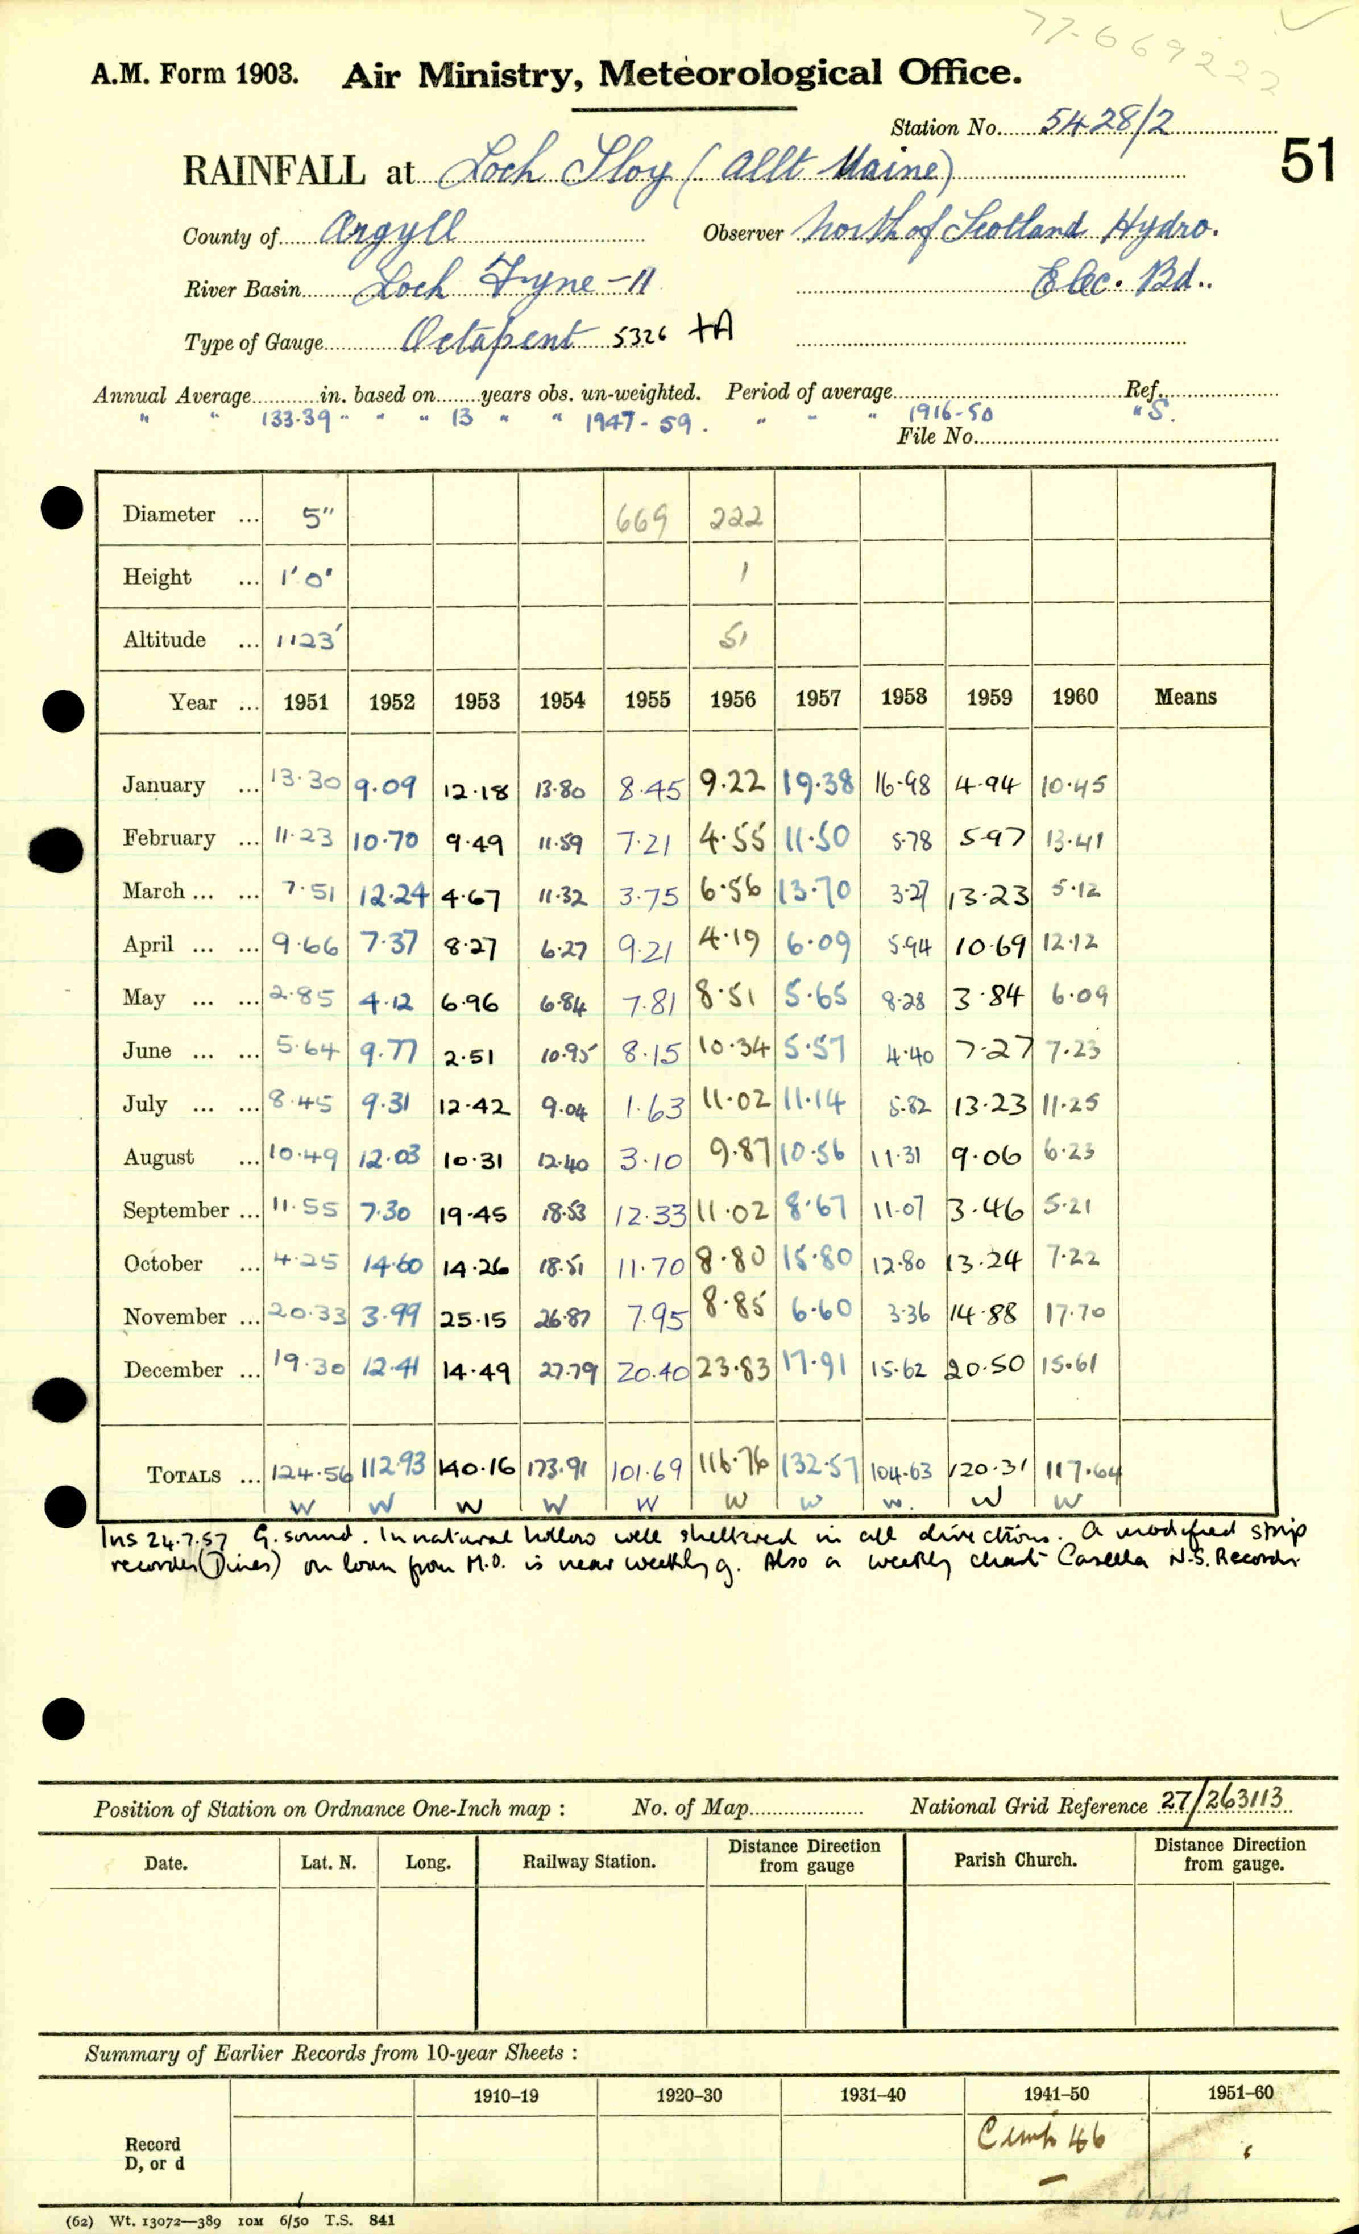 77-669222
A.M. Form 1903. Air Ministry, Meteorological Office.
Station No. 5428/2
RAINFALL at Loch Sloy (Allt Maine)
51
County of Argyll Observer North of Scotland Hydro.
River Basin Loch Fyne - 11 Elec. Bd..
Type of Gauge Octapent 5326 +A
Annual Average in. based on years obs. un-weighted. Period of average Ref.
" " 133.39 " " " 13 " " 1947-59. " " " 1916-50 " S.
File No.
Diameter ... 5" 669 222
Height ... 1'0" 1
Altitude ... 1123' 51
Year ... 1951 1952 1953 1954 1955 1956 1957 1958 1959 1960 Means
January ... 13.30 9.09 12.18 13.80 8.45 9.22 19.38 16.98 4.94 10.45
February ... 11.23 10.70 9.49 11.59 7.21 4.55 11.50 5.78 5.97 13.41
March ... ... 7.51 12.24 4.67 11.32 3.75 6.56 13.70 3.27 13.23 5.12
April ... ... 9.66 7.37 8.27 6.27 9.21 4.19 6.09 5.94 10.69 12.12
May ... ... 2.85 4.12 6.96 6.84 7.81 8.51 5.65 8.28 3.84 6.09
June ... ... 5.64 9.77 2.51 10.95 8.15 10.34 5.57 4.40 7.27 7.23
July ... ... 8.45 9.31 12.42 9.04 1.63 11.02 11.14 5.82 13.23 11.25
August ... 10.49 12.03 10.31 12.40 3.10 9.87 10.56 11.31 9.06 6.23
September ... 11.55 7.30 19.45 18.53 12.33 11.02 8.67 11.07 3.46 5.21
October ... 4.25 14.60 14.26 18.51 11.70 8.80 15.80 12.80 13.24 7.22
November ... 20.33 3.99 25.15 26.87 7.95 8.85 6.60 3.36 14.88 17.70
December ... 19.30 12.41 14.49 27.79 20.40 23.83 17.91 15.62 20.50 15.61
TOTALS ... 124.56 112.93 140.16 173.91 101.69 116.76 132.57 104.63 120.31 117.64
W W W W W W W W. W W
Ins 24.7.57 G. sound. In natural hollow well sheltered in all directions. A modified strip
recorder (Dines) on loan from M.O. is near weekly g. Also a weekly chart Casella N.S. Recorder
Position of Station on Ordnance One-Inch map : No. of Map National Grid Reference 27/263113
Date. Lat. N. Long. Railway Station. Distance from gauge Direction Parish Church. Distance from gauge. Direction
Summary of Earlier Records from 10-year Sheets :
1910–19 1920–30 1931–40 1941–50 1951–60
Record D, or d
46
(62) Wt. 13072—389 10M 6/50 T.S. 841